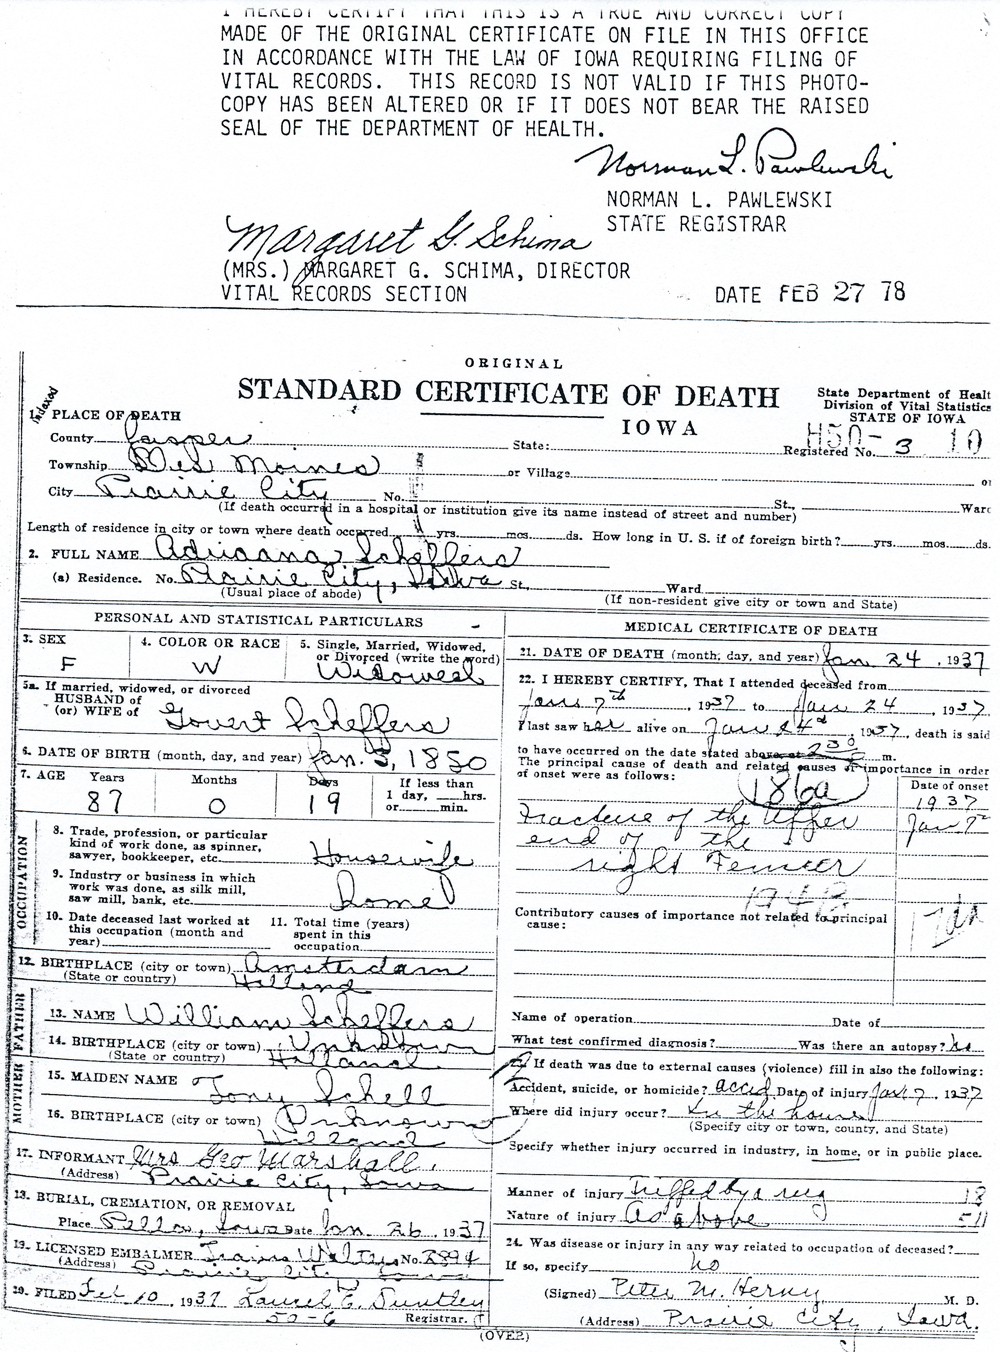 I HEREBY CERTIFY THAT THIS IS A TRUE AND CORRECT COPY
MADE OF THE ORIGINAL CERTIFICATE ON FILE IN THIS OFFICE
IN ACCORDANCE WITH THE LAW OF IOWA REQUIRING FILING OF
VITAL RECORDS. THIS RECORD IS NOT VALID IF THIS PHOTO-
COPY HAS BEEN ALTERED OR IF IT DOES NOT BEAR THE RAISED
SEAL OF THE DEPARTMENT OF HEALTH.
Norman L. Pawlewski
NORMAN L. PAWLEWSKI
STATE REGISTRAR
Margaret G. Schima
(MRS.) MARGARET G. SCHIMA, DIRECTOR
VITAL RECORDS SECTION DATE FEB 27 78
ORIGINAL
STANDARD CERTIFICATE OF DEATH
IOWA
State Department of Healt
Division of Vital Statistics
STATE OF IOWA
H50- 3 10
Registered No.
Indexed
1. PLACE OF DEATH
County Jasper State:
Township Des Moines or Village
City Prairie City No. St., Ward
(If death occurred in a hospital or institution give its name instead of street and number)
Length of residence in city or town where death occurred yrs. mos. ds. How long in U. S. if of foreign birth? yrs. mos. ds.
2. FULL NAME Adriaana Scheffers
(a) Residence. No. Prairie City, Iowa St., Ward
(Usual place of abode) (If non-resident give city or town and State)
PERSONAL AND STATISTICAL PARTICULARS
3. SEX F
4. COLOR OR RACE W
5. Single, Married, Widowed, or Divorced (write the word) Widowed
5a. If married, widowed, or divorced
HUSBAND of
(or) WIFE of Govert Scheffers
6. DATE OF BIRTH (month, day, and year) Jan. 5, 1850
7. AGE Years Months Days If less than
87 0 19 1 day, hrs.
or min.
OCCUPATION
8. Trade, profession, or particular
kind of work done, as spinner,
sawyer, bookkeeper, etc. Housewife
9. Industry or business in which
work was done, as silk mill,
saw mill, bank, etc. home
10. Date deceased last worked at
this occupation (month and
year)
11. Total time (years)
spent in this
occupation
12. BIRTHPLACE (city or town) Amsterdam
(State or country) Holland
FATHER
13. NAME William Scheffers
14. BIRTHPLACE (city or town) Unknown
(State or country) Holland
MOTHER
15. MAIDEN NAME Tony Schell
16. BIRTHPLACE (city or town) Unknown
Holland
17. INFORMANT Mrs Geo Marshall.
(Address) Prairie City, Iowa
18. BURIAL, CREMATION, OR REMOVAL
Place Pella, Iowa Date Jan 26, 1937
19. LICENSED EMBALMER No. 2894
(Address) Prairie City Iowa
20. FILED Feb 10, 1937 Laurel E. Huntley
50-6 Registrar.
MEDICAL CERTIFICATE OF DEATH
21. DATE OF DEATH (month, day, and year) Jan 24, 1937
22. I HEREBY CERTIFY, That I attended deceased from
Jan 7th, 1937 to Jan 24, 1937
I last saw her alive on Jan 24, 1937, death is said
to have occurred on the date stated above, at 2 30 m.
The principal cause of death and related causes of importance in order
of onset were as follows:
Date of onset
1937
186a
Fracture of the Upper Jan 7th
end of the
right Femeer
194B
Contributory causes of importance not related to principal
cause:
Name of operation Date of
What test confirmed diagnosis? Was there an autopsy? No
23. If death was due to external causes (violence) fill in also the following:
Accident, suicide, or homicide? accid Date of injury Jan 7, 1937
Where did injury occur? In the house
(Specify city or town, county, and State)
Specify whether injury occurred in industry, in home, or in public place.
Manner of injury Tripped by a rug 18
Nature of injury As above 511
24. Was disease or injury in any way related to occupation of deceased?
If so, specify no
(Signed) Peter M. Herny M. D.
(Address) Prairie City, Iowa.
(OVER)